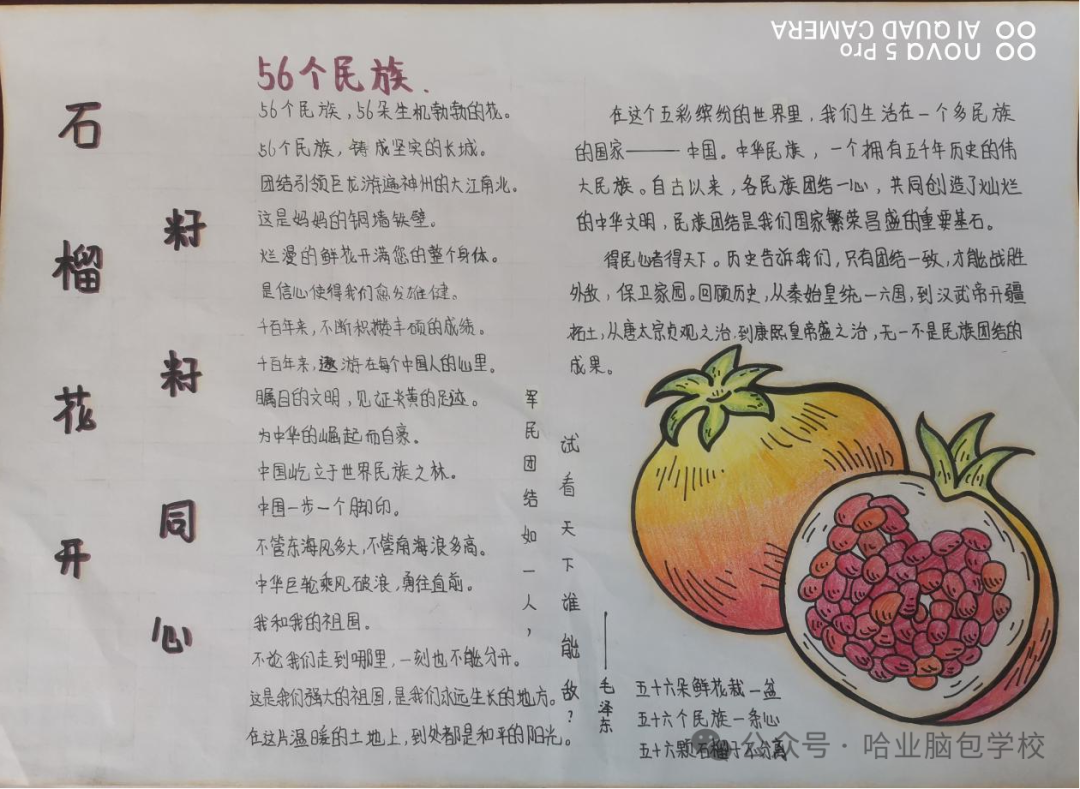 石榴花开
籽籽同心
56个民族.
56个民族,56朵生机勃勃的花。
56个民族,铸成坚实的长城。
团结引领巨龙游遍神州的大江南北。
这是妈妈的铜墙铁壁。
烂漫的鲜花开满您的整个身体。
是信心使得我们愈发雄健。
千百年来,不断积攒丰硕的成绩。
千百年来,遨游在每个中国人的心里。
瞩目的文明,见证炎黄的足迹。
为中华的崛起而自豪。
中国屹立于世界民族之林。
中国一步一个脚印。
不管东海风多大,不管南海浪多高。
中华巨轮乘风破浪,勇往直前。
我和我的祖国。
不论我们走到哪里,一刻也不能分开。
这是我们强大的祖国,是我们永远生长的地方。
在这片温暖的土地上,到处都是和平的阳光。
军民团结如一人,
试看天下谁能敌?
——毛泽东
在这个五彩缤纷的世界里,我们生活在一个多民族
的国家——中国。中华民族,一个拥有五千年历史的伟
大民族。自古以来,各民族团结一心,共同创造了灿烂
的中华文明,民族团结是我们国家繁荣昌盛的重要基石。
得民心者得天下。历史告诉我们,只有团结一致,才能战胜
外敌,保卫家园。回顾历史,从秦始皇统一六国,到汉武帝开疆
拓土,从唐太宗贞观之治,到康熙皇帝盛之治,无一不是民族团结的
成果。
五十六朵鲜花栽一盆
五十六个民族一条心
五十六颗石榴子不分离
公众号·哈业脑包学校
nova 5 Pro
AI QUAD CAMERA